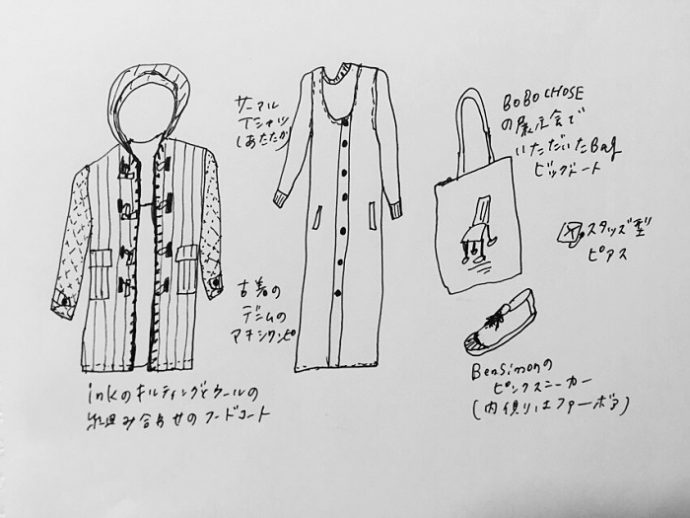 サーマル
Tシャツ
(あたたか)
古着の
デニムの
マキシワンピ
inkのキルティングとウールの
組み合わせのフードコート
BOBO CHOSE
の展示会で
いただいたBag
ビッグトート
スタッズ型
ピアス
BenSimonの
ピンクスニーカー
(内側はファーボア)